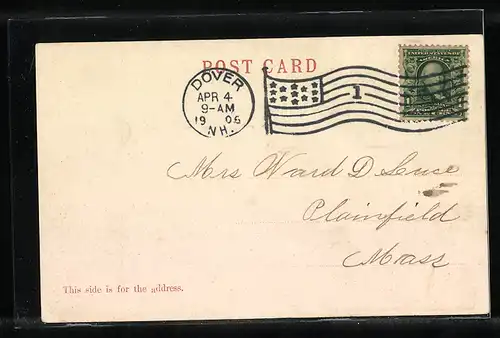 POST CARD
DOVER
APR 4
9-AM
1906
N.H.
1
UNITED STATES OF
AMERICA
Mrs Ward D
Plainfield
Mass
This side is for the address.